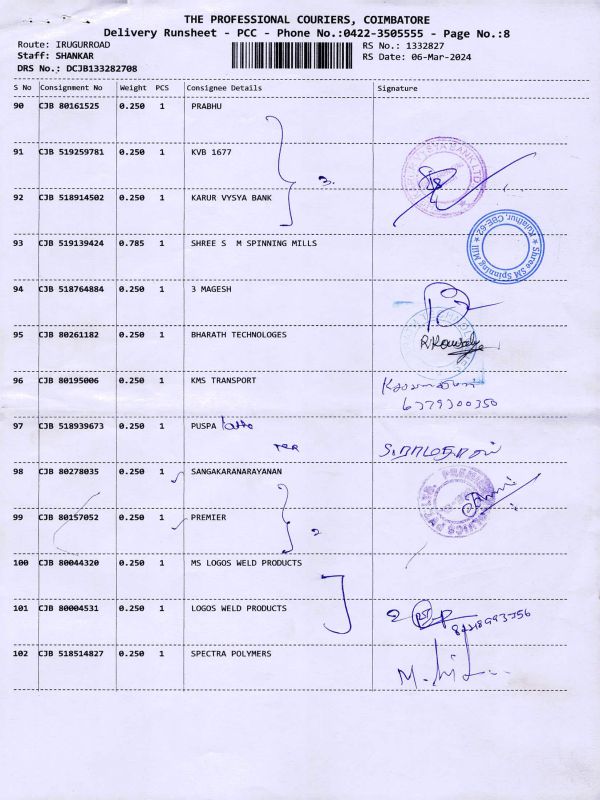 THE PROFESSIONAL COURIERS, COIMBATORE
Delivery Runsheet - PCC - Phone No.:0422-3505555 - Page No.:8
Route: IRUGURROAD RS No.: 1332827
Staff: SHANKAR RS Date: 06-Mar-2024
DRS No.: DCJB133282708
S No Consignment No Weight PCS Consignee Details Signature
90 CJB 80161525 0.250 1 PRABHU
91 CJB 519259781 0.250 1 KVB 1677
3.
92 CJB 518914502 0.250 1 KARUR VYSYA BANK
93 CJB 519139424 0.785 1 SHREE S M SPINNING MILLS
Shree SM Spinning Mill
94 CJB 518764884 0.250 1 3 MAGESH
95 CJB 80261182 0.250 1 BHARATH TECHNOLOGES
96 CJB 80195006 0.250 1 KMS TRANSPORT
6379300350
97 CJB 518939673 0.250 1 PUSPA
98 CJB 80278035 0.250 1 SANGAKARANARAYANAN
PREMIER
99 CJB 80157052 0.250 1 PREMIER
2
100 CJB 80044320 0.250 1 MS LOGOS WELD PRODUCTS
101 CJB 80004531 0.250 1 LOGOS WELD PRODUCTS
2
102 CJB 518514827 0.250 1 SPECTRA POLYMERS